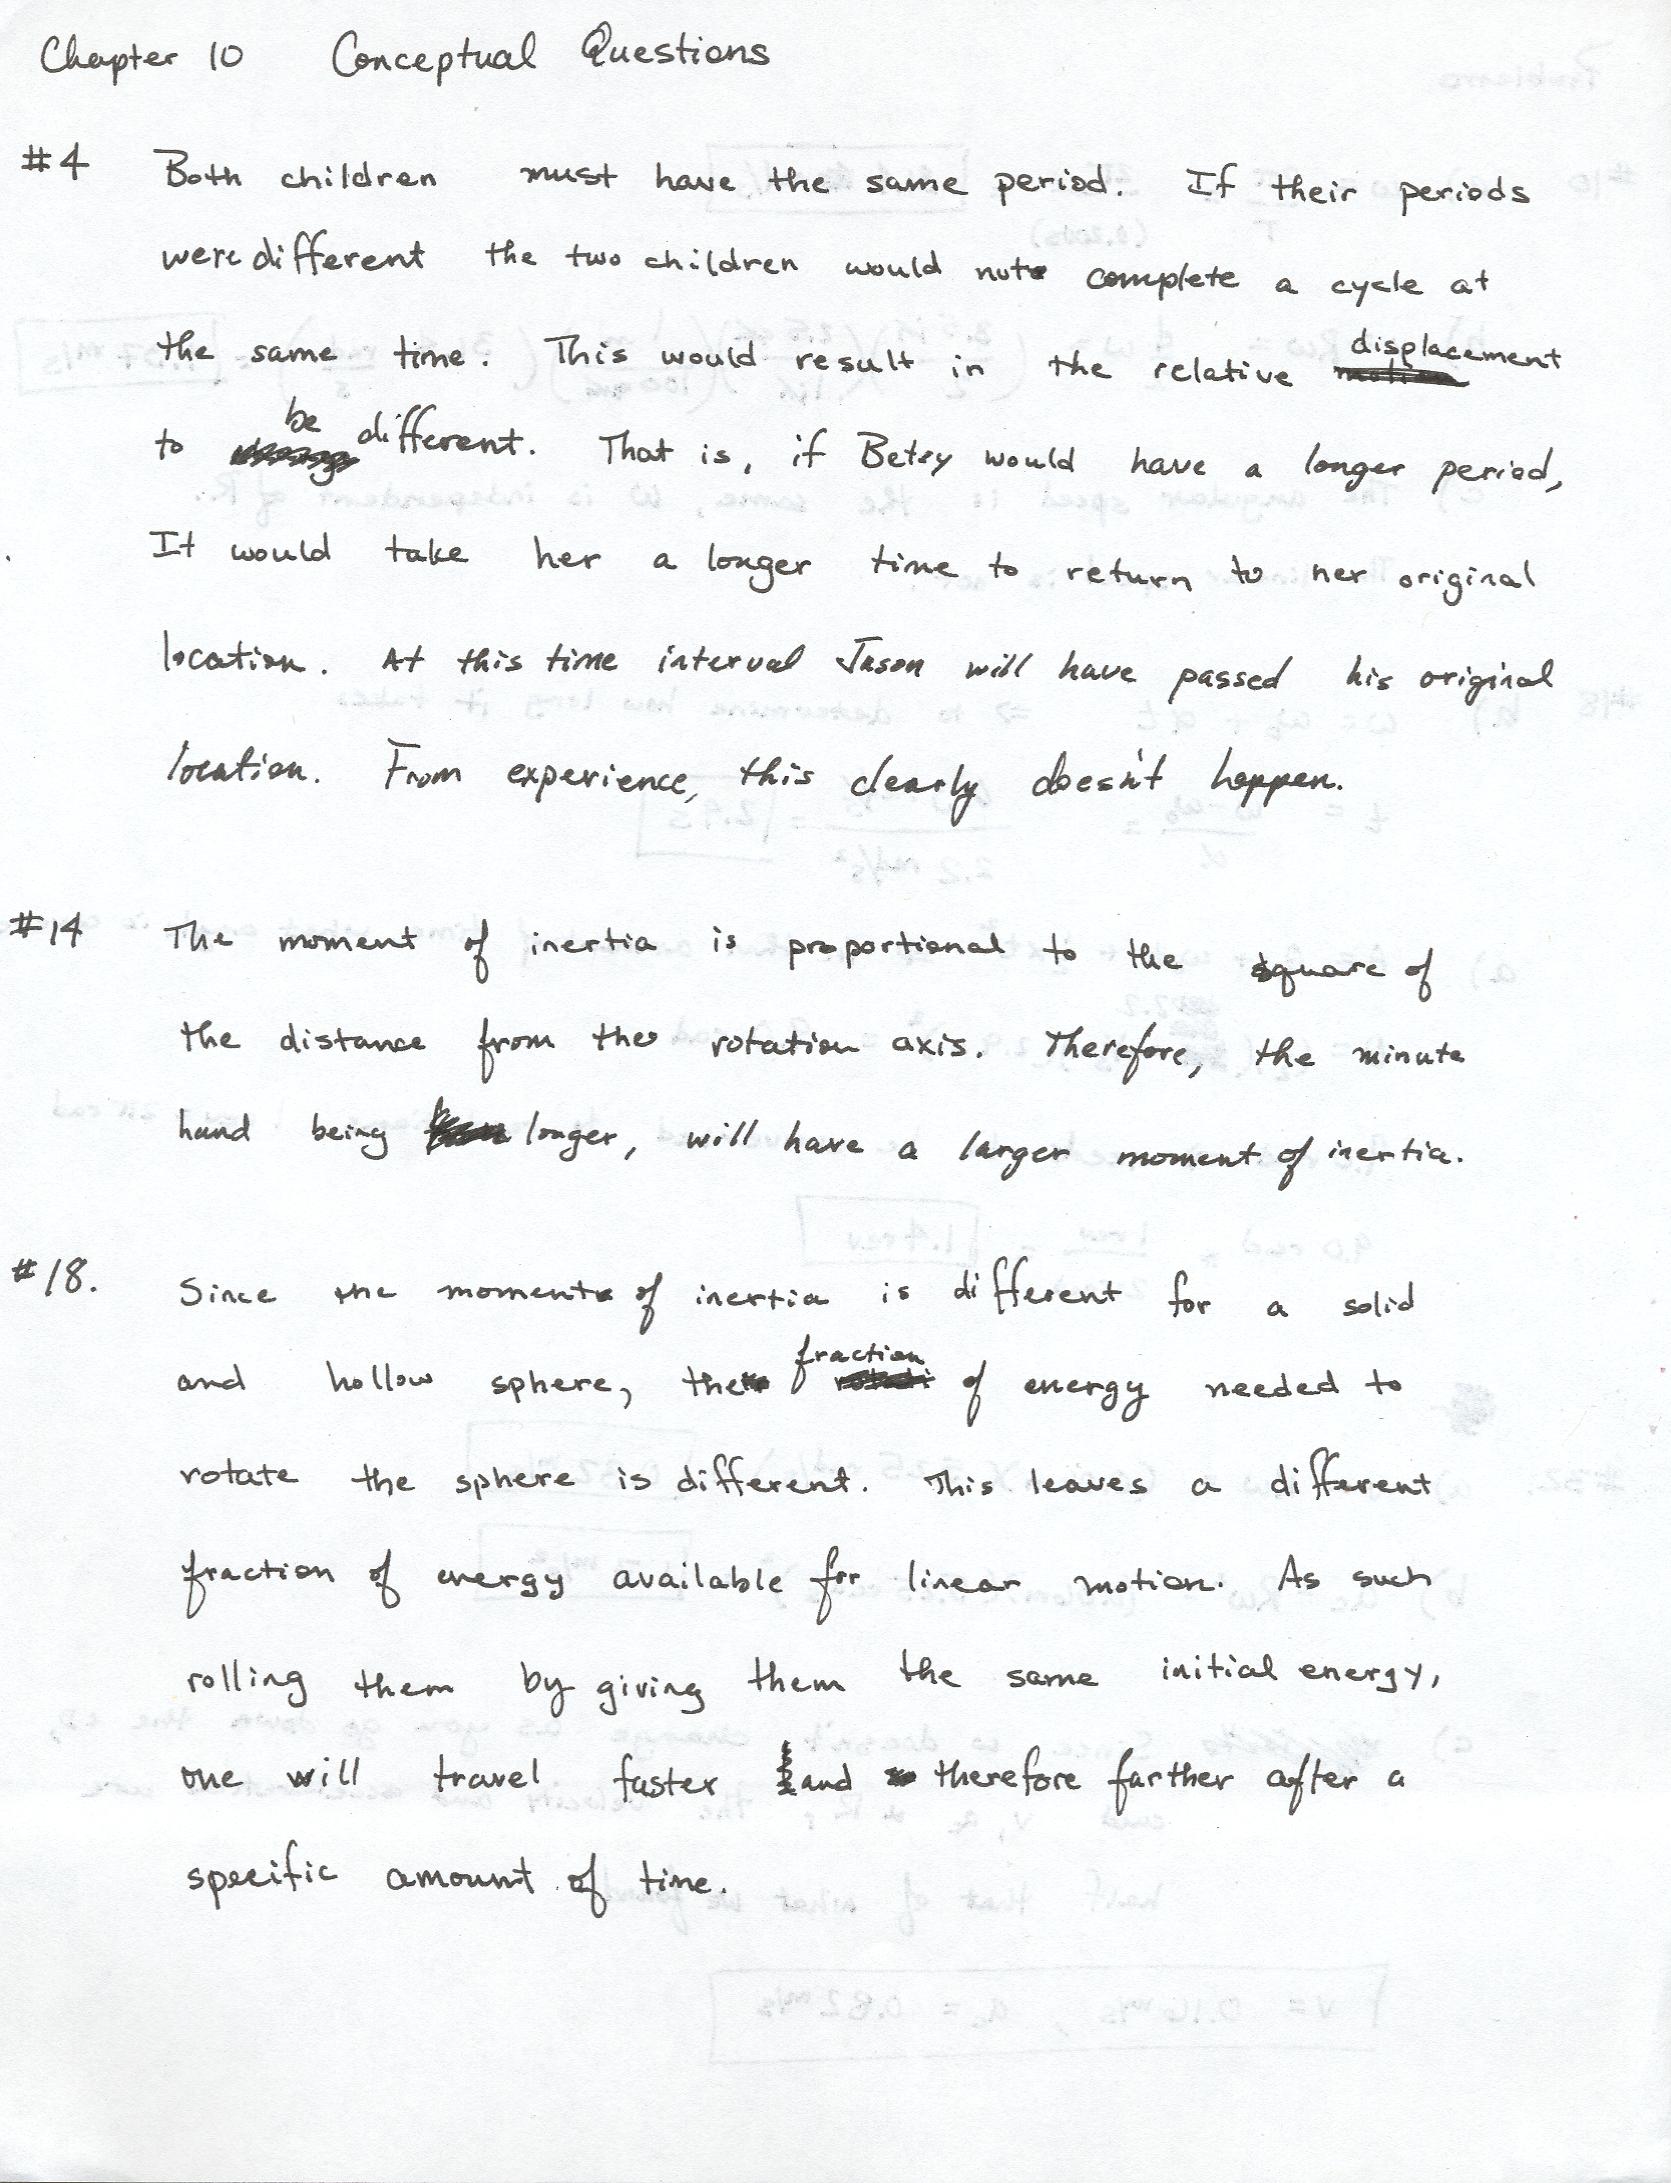 Chapter 10 Conceptual Questions
#4 Both children must have the same period. If their periods
were different the two children would not complete a cycle at
the same time. This would result in the relative displacement
to be different. That is, if Betsy would have a longer period,
It would take her a longer time to return to her original
location. At this time interval Jason will have passed his original
location. From experience, this clearly doesn't happen.
#14 The moment of inertia is proportional to the square of
the distance from the rotation axis. Therefore, the minute
hand being longer, will have a larger moment of inertia.
#18. Since the moment of inertia is different for a solid
and hollow sphere, the fraction of energy needed to
rotate the sphere is different. This leaves a different
fraction of energy available for linear motion. As such
rolling them by giving them the same initial energy,
one will travel faster and therefore farther after a
specific amount of time.